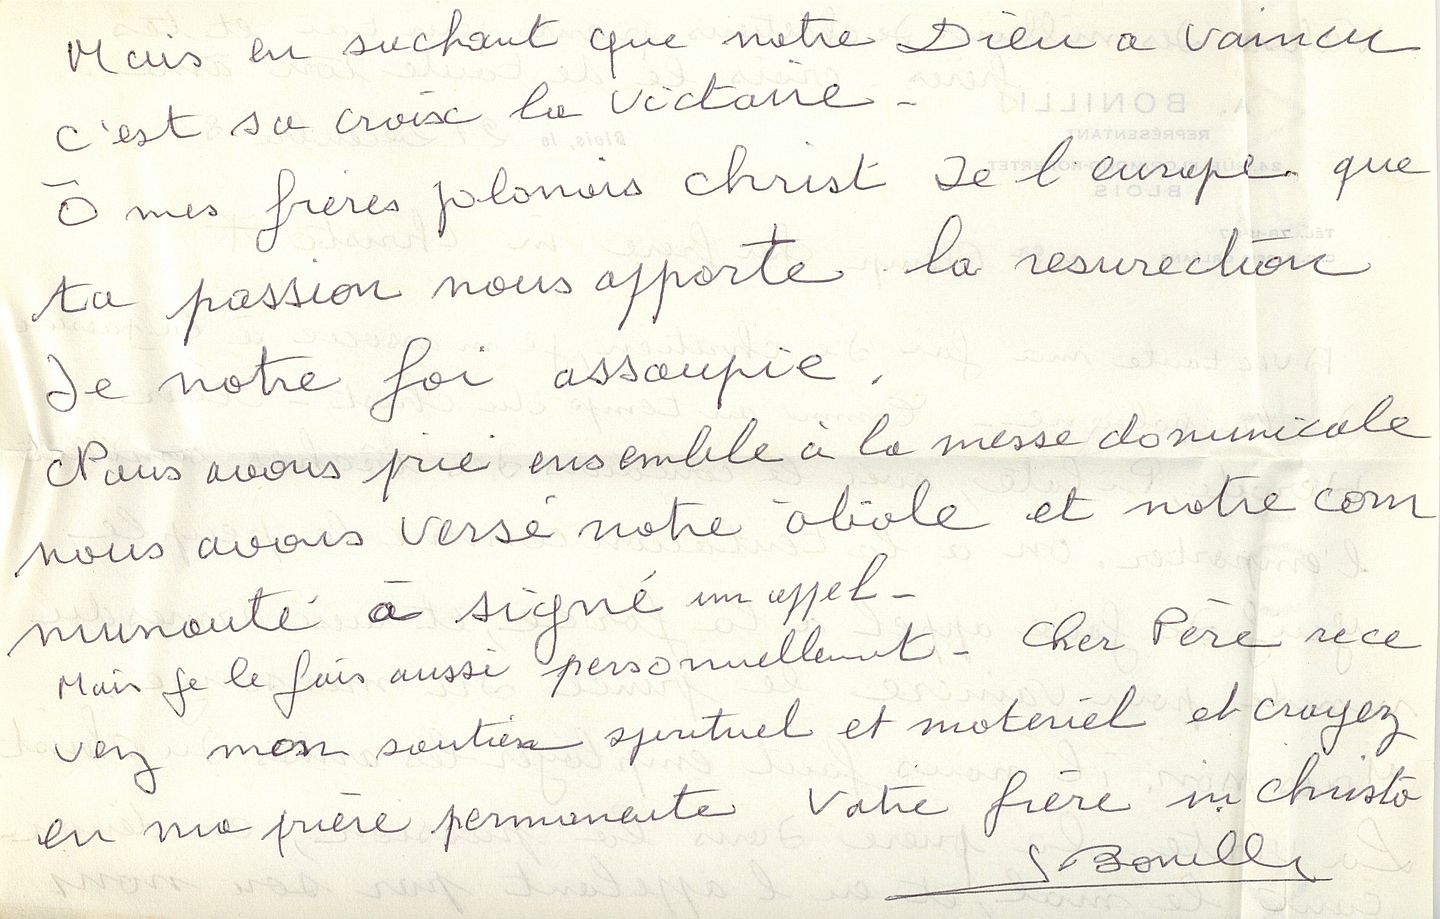 Mais en sachant que notre Dieu a vaincu
c'est sa croix la victoire -
Ô mes frères polonais christ de l'europe que
ta passion nous apporte la resurection
de notre foi assoupie.
Nous avons prié ensemble à la messe dominicale
nous avons versé notre obole et notre com
munauté à signé un appel -
Mais je le fais aussi personnellement - Cher Père rece
vez mon soutien spirituel et materiel et croyez
en ma prière permanente Votre frère in christo
Bonilli